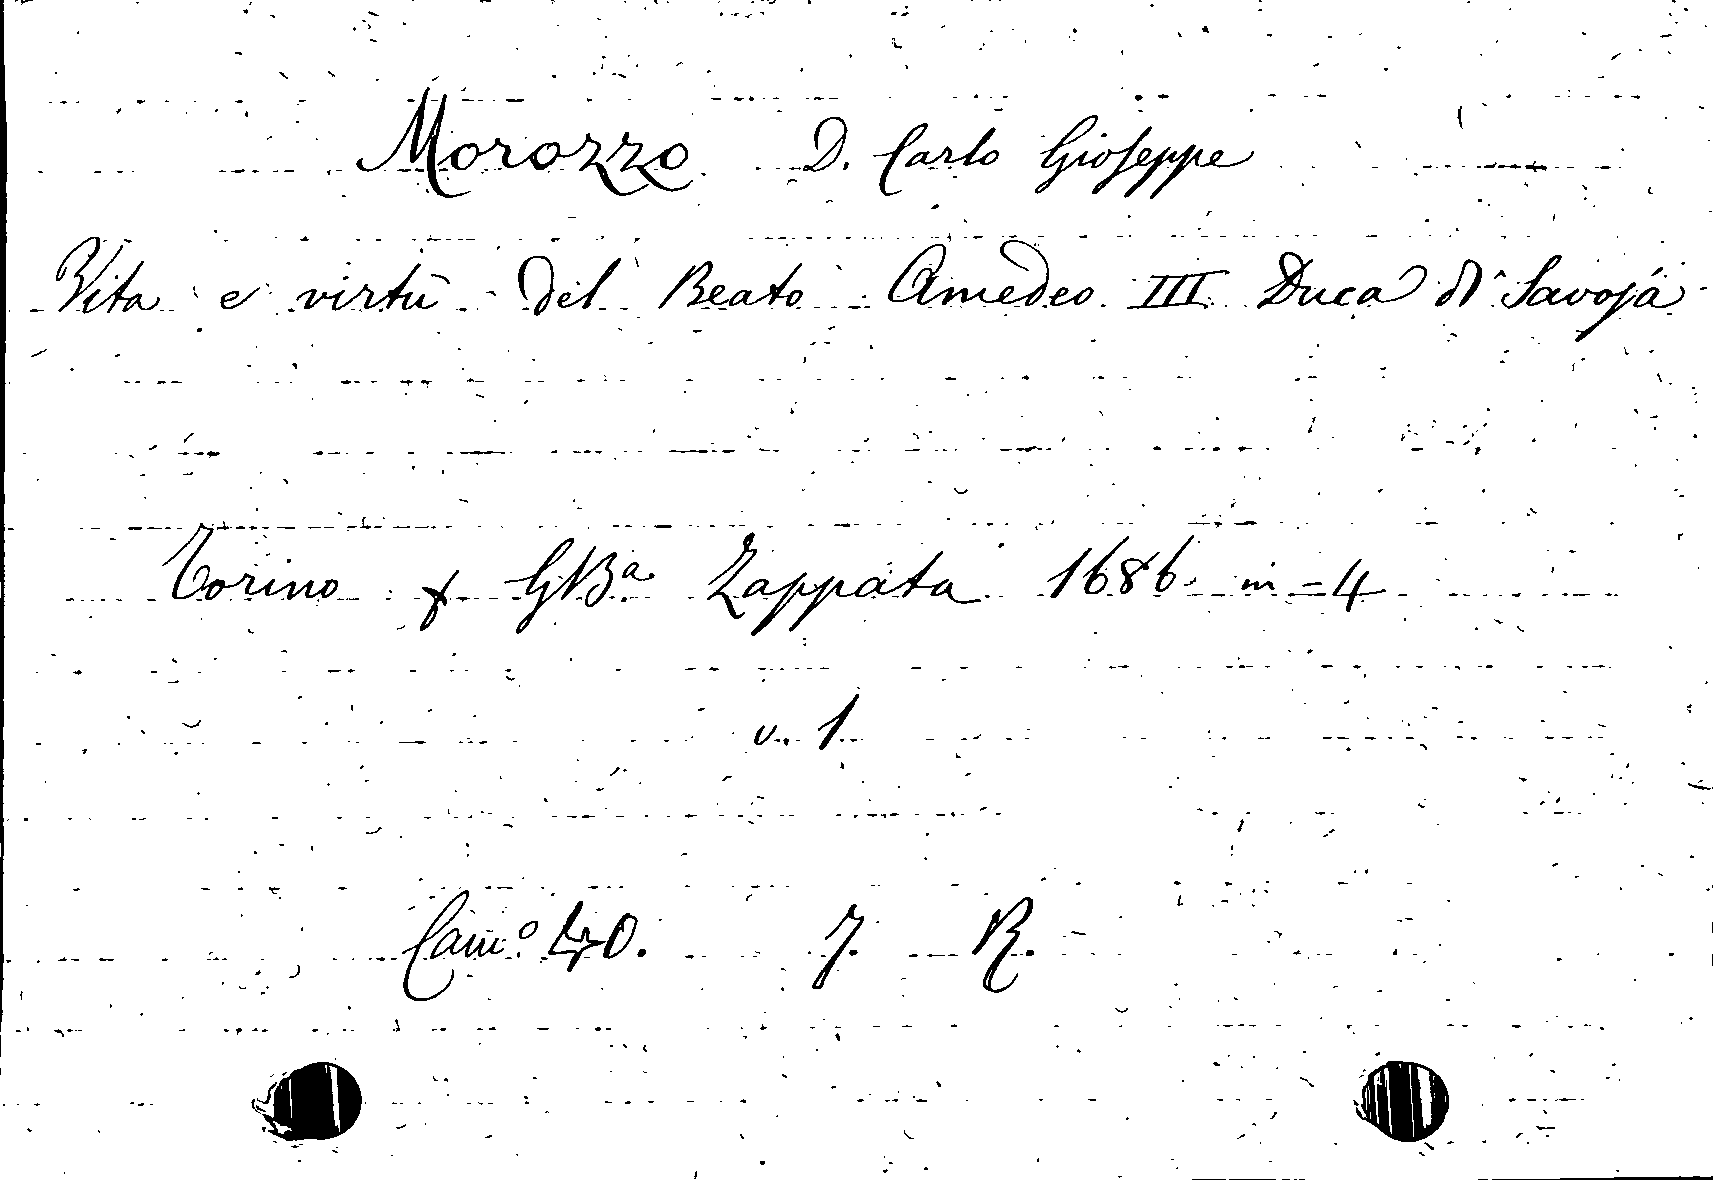 Morozzo D. Carlo Gioseppe
Vita e virtù del Beato Amedeo III Duca di Savoja
Torino x GBa Zappata 1686 in = 4
v. 1
Cam.o 40. 7. R.